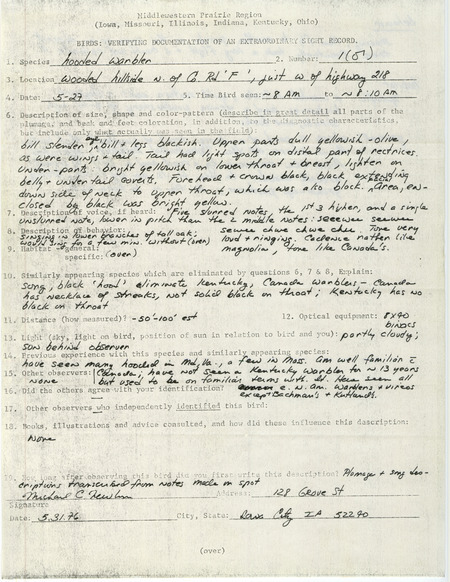 Middlewestern Prairie Region
(Iowa, Missouri, Illinois, Indiana, Kentucky, Ohio)
BIRDS: VERIFYING DOCUMENTATION OF AN EXTRAORDINARY SIGHT RECORD.
1. Species hooded warbler 2. Number: 1(♂)
3. Location wooded hillside n. of Co. Rd "F", just w of highway 218
4. Date: 5-27 5. Time Bird seen: ~8 AM to ~8:10 AM
6. Description of size, shape and color-pattern (describe in great detail all parts of the
plumage, and beak and feet coloration, in addition, to the diagnostic characteristics,
but include only what actually was seen in the field):
bill slender, eye, bill + legs blackish. Upper parts dull yellowish-olive,
as were wings + tail. Tail had light spots on distal part of rectrices.
Under-parts bright yellowish on lower throat + breast, lighter on
belly + undertail coverts. Forehead + crown black, black extending
down side of neck to upper throat, which was also black. Area, en-
closed by black was bright yellow.
7. Description of voice, if heard: Five slurred notes, the 1st 3 higher, and a single
unslurred note, lower in pitch than the 2 middle notes: seeewee seewee
8. Description of behavior: seewee chwe chwe chwe. Tone very
singing in lower branches of tall oak;
would sing for a few min. without (over) loud + ringing. Cadence rather like
9. Habitat - general: magnolia, tone like Canada's.
specific: (over)
10. Similarly appearing species which are eliminated by questions 6, 7 & 8, Explain:
Song, black 'hood' eliminate Kentucky, Canada warblers - Canada
has necklace of streaks, not solid black on throat; Kentucky has no
black on throat
11. Distance (how measured)? ~50'-100' est 12. Optical equipment: 8x40
binocs
13. Light (sky, light on bird, position of sun in relation to bird and you): partly cloudy;
sun behind observer
14. Previous experience with this species and similarly appearing species:
have seen many hooded in Md, Va, a few in Mass. Am well familiar c̄
15. Other observers: Canada; have not seen a Kentucky warbler for ~13 years
none but used to be on familiar terms with it. Have seen all
16. Did the others agree with your identification? e. n. Am. warblers + vireos
except Bachman's + Kirtland's.
17. Other observers who independently identified this bird:
18. Books, illustrations and advice consulted, and how did these influence this description:
None
19. How long after observing this bird did you first write this description? Plumage + song des-
criptions transcribed from notes made on spot
Michael C. Newlon Address: 128 Grove St
Signature
Date: 5.31.76 City, State: Iowa City IA 52240
(over)